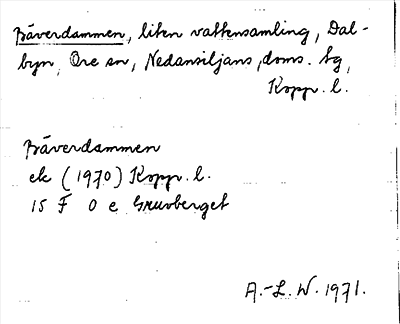 Bäverdammen, liten vattensamling, Dal-
byn, Ore sn, Nedansiljans, doms. tg,
Kopp. l.
Bäverdammen
ek (1970) Kopp. l.
15 F 0 e Gruvberget
A.-L. W. 1971.